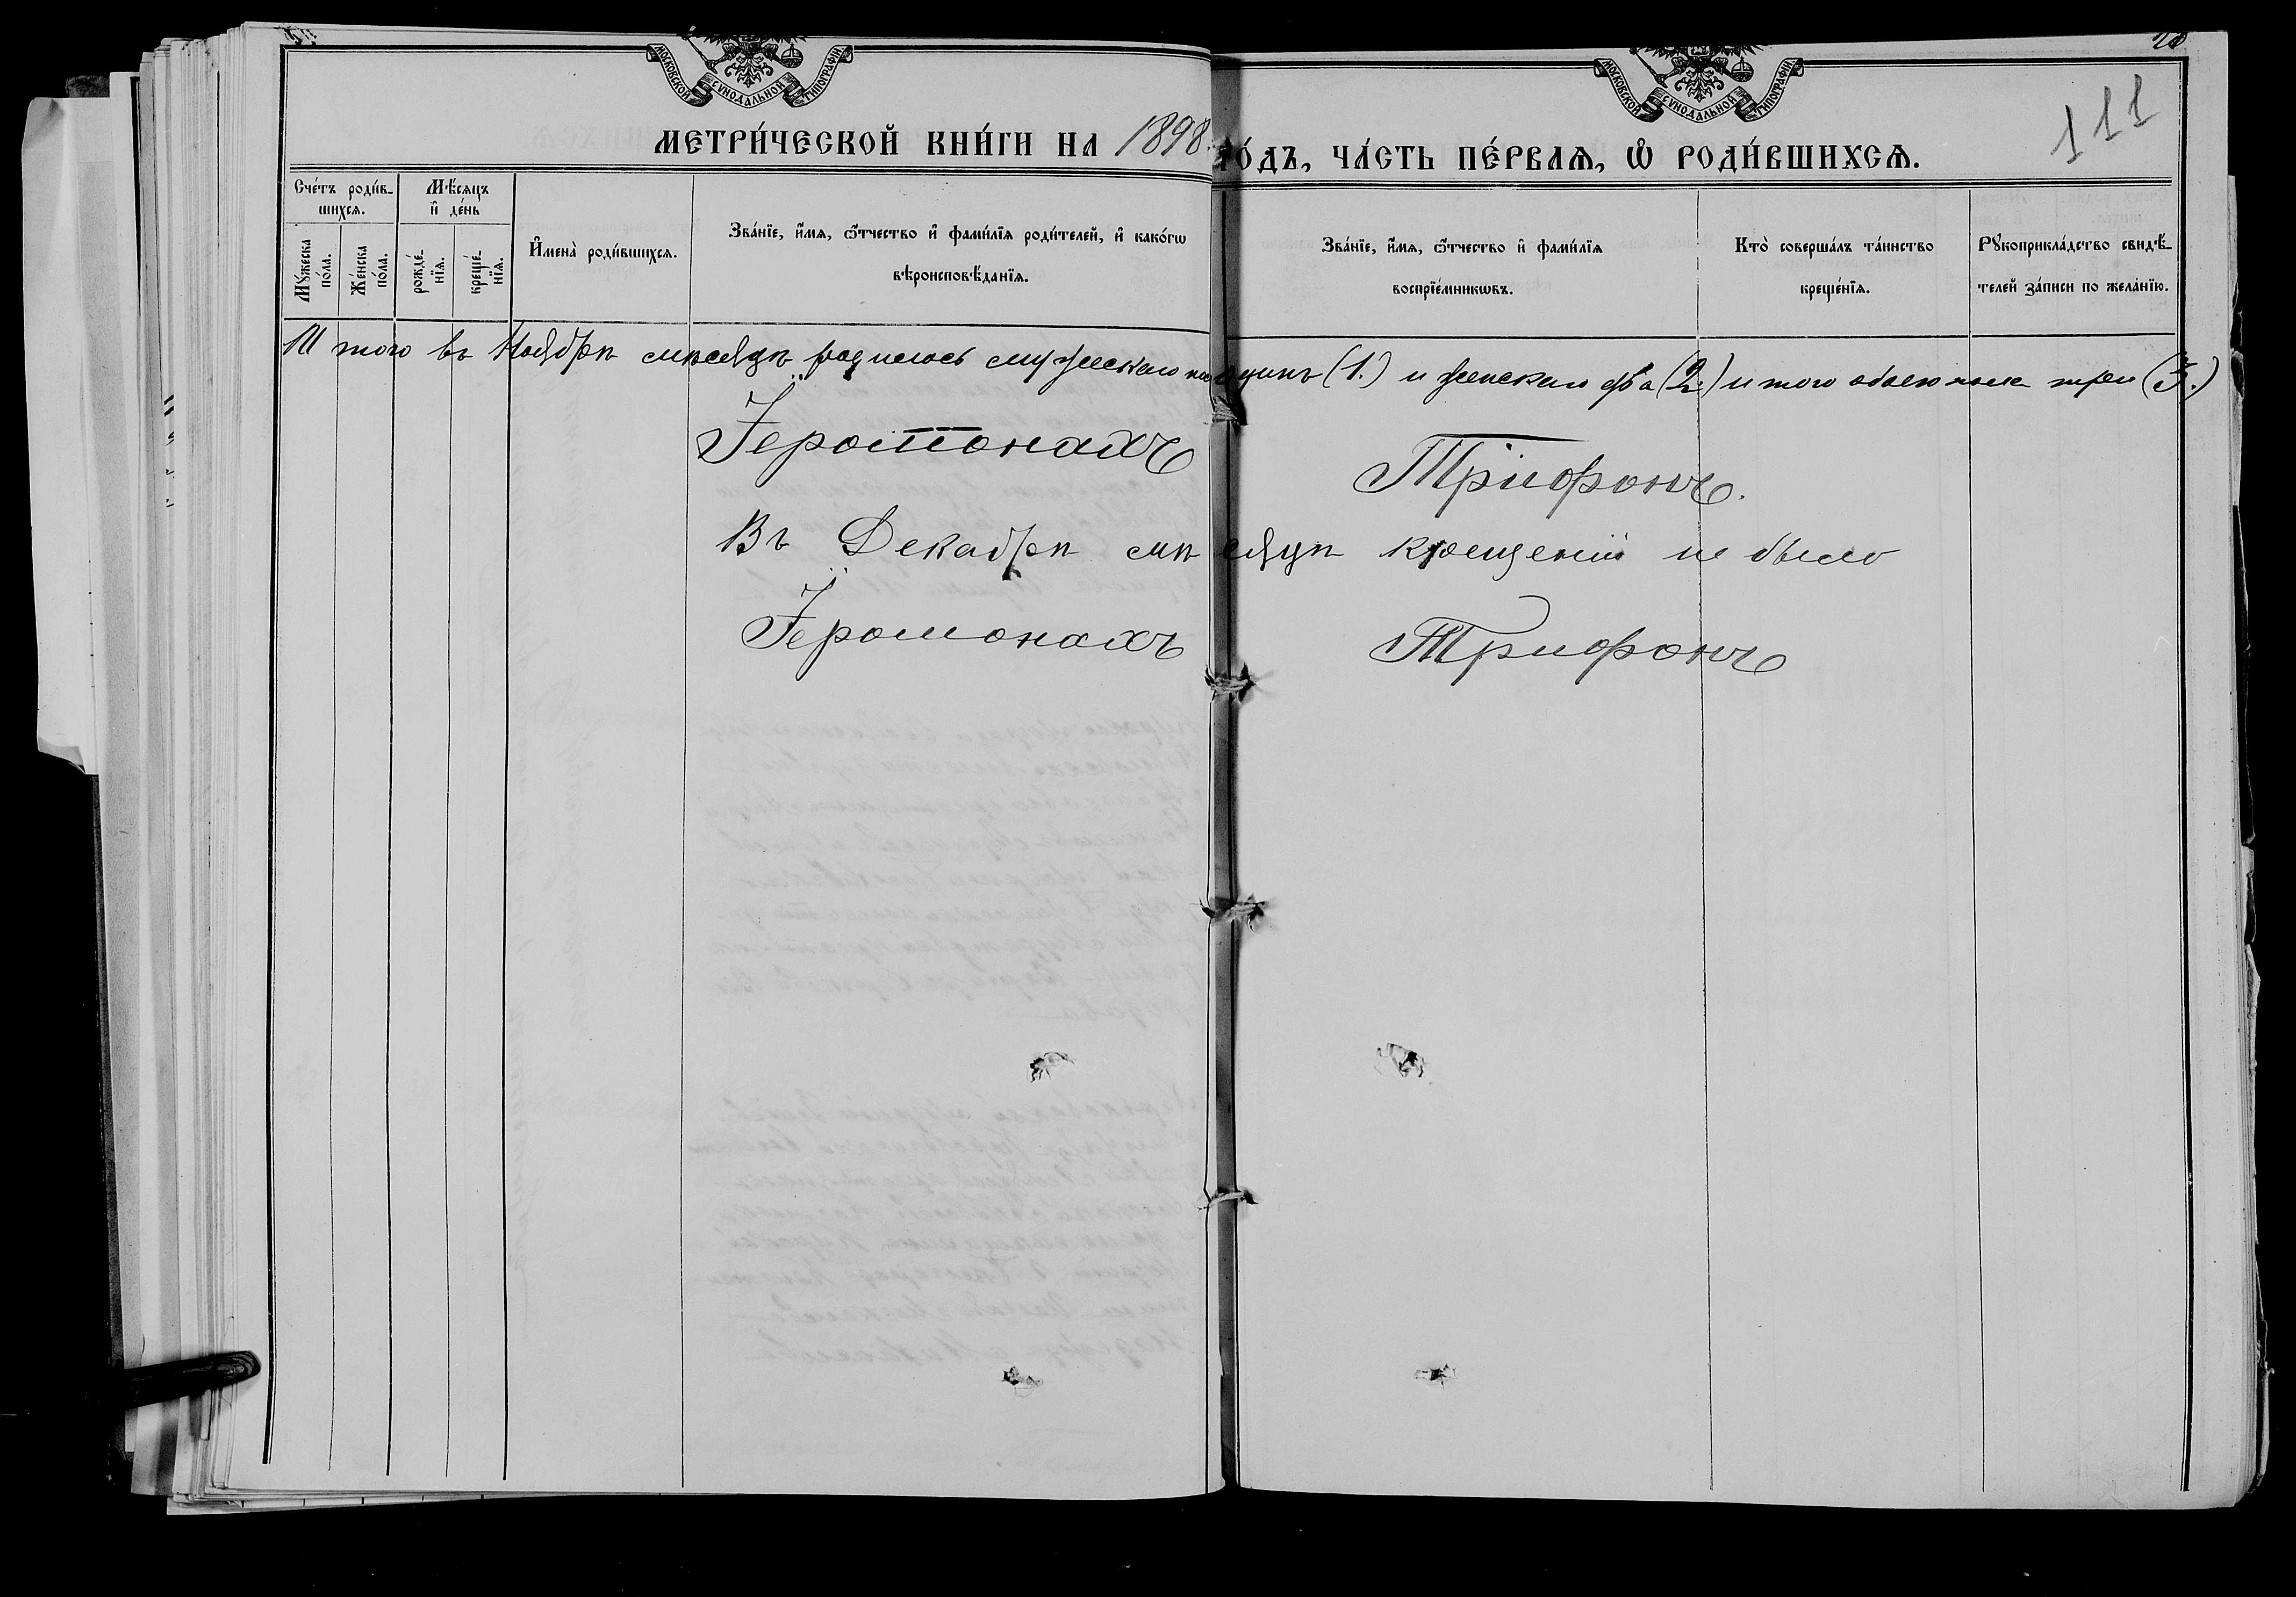 МОСКОВСКОЙ СѴНОДАЛЬНОЙ ТИПОГРАФІИ
МОСКОВСКОЙ СѴНОДАЛЬНОЙ ТИПОГРАФІИ
28
111
МЕТРИ́ЧЕСКОЙ КНИ́ГИ НА 1898. ГО́ДЪ, ЧА́СТЬ ПЕ́РВАѦ, Ѡ҆ РОДИ́ВШИХСѦ.
Сче́тъ роди́в-
шихсѧ.
Мꙋ́жеска
по́ла.
Же́нска
по́ла.
Мѣ́сѧцъ
и҆ де́нь
рожде́-
нїѧ.
креще́-
нїѧ.
И҆мена̀ роди́вшихсѧ.
Зва́нїе, и҆́мѧ, ѻ҆́тчество и҆ фами́лїѧ роди́телей, и҆ како́гѡ
вѣроисповѣ́данїѧ.
Зва́нїе, и҆́мѧ, ѻ҆́тчество и҆ фами́лїѧ
воспрїе́мникѡвъ.
Кто̀ соверша́лъ та́инство
креще́нїѧ.
Рꙋкоприкла́дство свидѣ́-
телей за́писи по жела́нїю.
И того въ Ноябрѣ мѣсяцѣ родилось мужскаго по одинъ (1.) и женскаго два (2.) и того обоего пола трои (3.)
Іеромонахъ Трифонъ.
Въ Декабрѣ мѣсяцѣ крещеній не было
Іеромонахъ Трифонъ